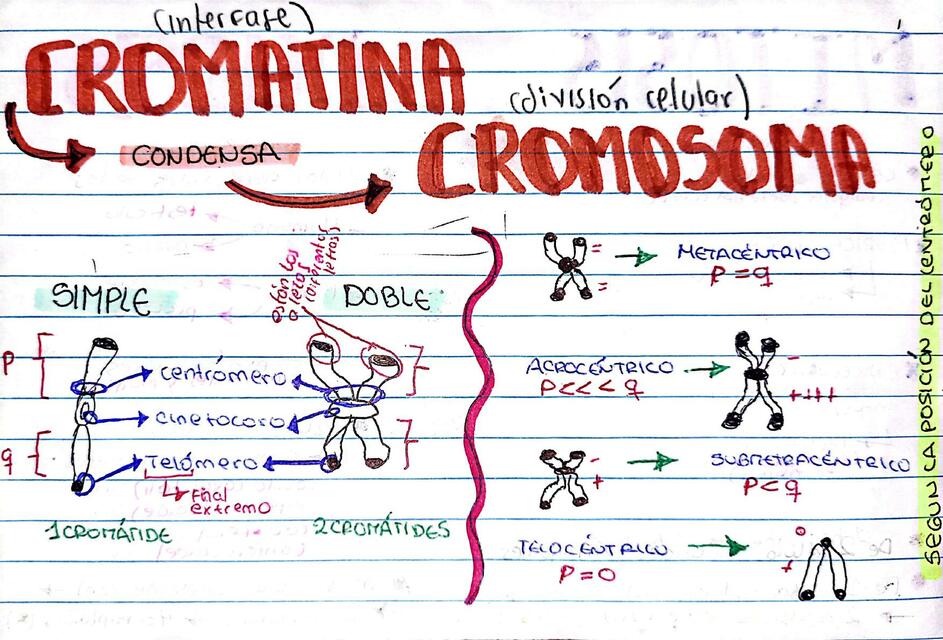 (interfase)
CROMATINA
(división celular)
CONDENSA
CROMOSOMA
SIMPLE
están los
alelos
(diferentes
letras)
DOBLE
p
q
centrómero
cinetocoro
Telómero
Final
extremo
1 CROMÁTIDE
2 CROMÁTIDES
=
=
METACÉNTRICO
P = q
ACROCÉNTRICO
P <<< q
-
++++
-
+
SUBMETACÉNTRICO
P < q
TELOCÉNTRICO
P = 0
0
+
SEGUN LA POSICIÓN DEL CENTROMERO